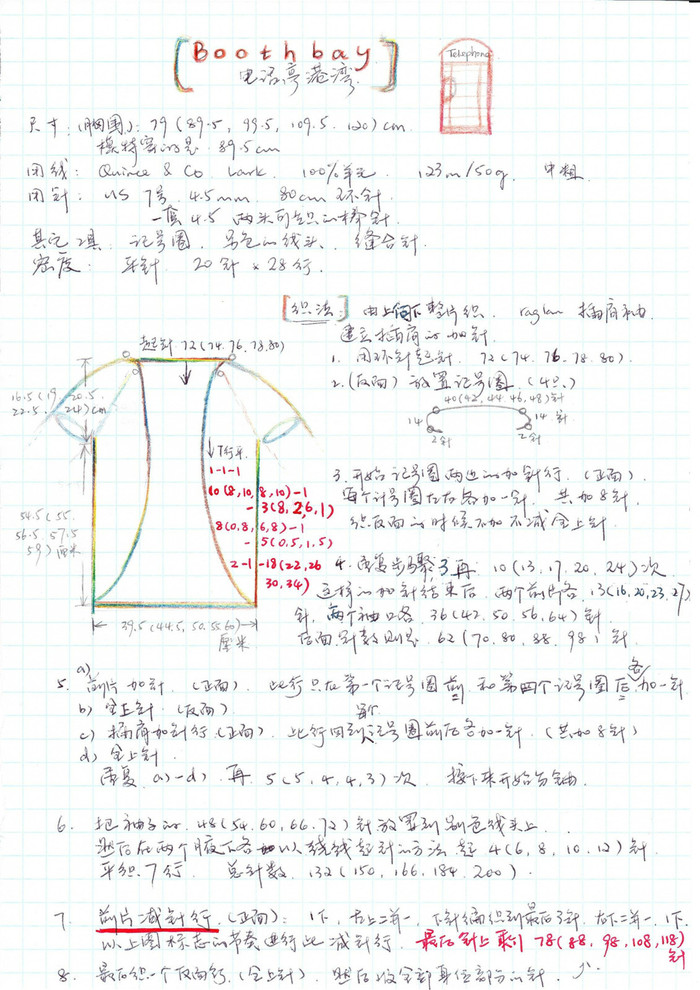 [Boothbay]
电话亭港湾
Telephone
尺寸:(胸围): 79(89.5, 99.5, 109.5. 120)cm
模特穿的是 89.5cm
用线: Quince & Co Lark. 100%羊毛. 123m/50g. 中粗
用针: US 7号 4.5mm. 80cm 环针.
一套 4.5 两头可织的棒针.
其它工具. 记号圈. 另色的线头. 缝合针.
密度. 平针. 20针 × 28行.
[织法:] 由上向下整片织. raglan 插肩袖.
建立插肩的加针.
1. 用环针起针. 72(74. 76. 78. 80).
2.(反面) 放置记号圈 (4只)
40(42, 44. 46, 48)针
14
14针
2针
2针
起针 72(74. 76. 78. 80)
16.5(19 20.5.
22.5. 24)cm
54.5(55.
56.5. 57.5
59)厘米
39.5(44.5, 50. 55 60)
厘米
7行平
1-1-1
10(8,10,8,10)-1
-3(8,26,1)
8(0.8,6,8)-1
-5(0.5,1.5)
2-1-18(22,26
30,34)
3. 开始记号圈两边的加针行. (正面).
每个记号圈左右各加一针. 共加8针.
织反面的时候不加不减全上针.
4. 重复步骤3再 10(13, 17. 20, 24)次
这样的加针结束后. 两个前片各 13(16,20,23,27)
针, 两个袖口各. 36(42. 50. 56, 64)针.
后面针数则是. 62(70. 80, 88. 98)针
5. a) 前片加针. (正面). 此行只在第一个记号圈前 和第四个记号圈后各加一针
b) 全上针. (反面).
c) 插肩加针行(正面). 此行回到每个记号圈前后各加一针. (共加8针)
d) 全上针.
重复 a)-d) 再 5(5, 4, 4, 3)次. 接下来开始分袖.
6. 把袖子的. 48(54. 60, 66. 72)针放置到别色线头上.
然后在两个腋下各以绕线起针的方法起 4(6, 8, 10, 12)针
平织.7行. 总针数. 132(150, 166. 184. 200).
7. 前片减针行.(正面): 1下, 右上二并一, 下针编织到最后3针, 左下二并一, 1下.
以上图标志的节奏进行此减针行. 最后针上剩 78(88, 98, 108, 118)
针
8. 最后织一个反面行.(全上针). 然后收全部身位部分的针.